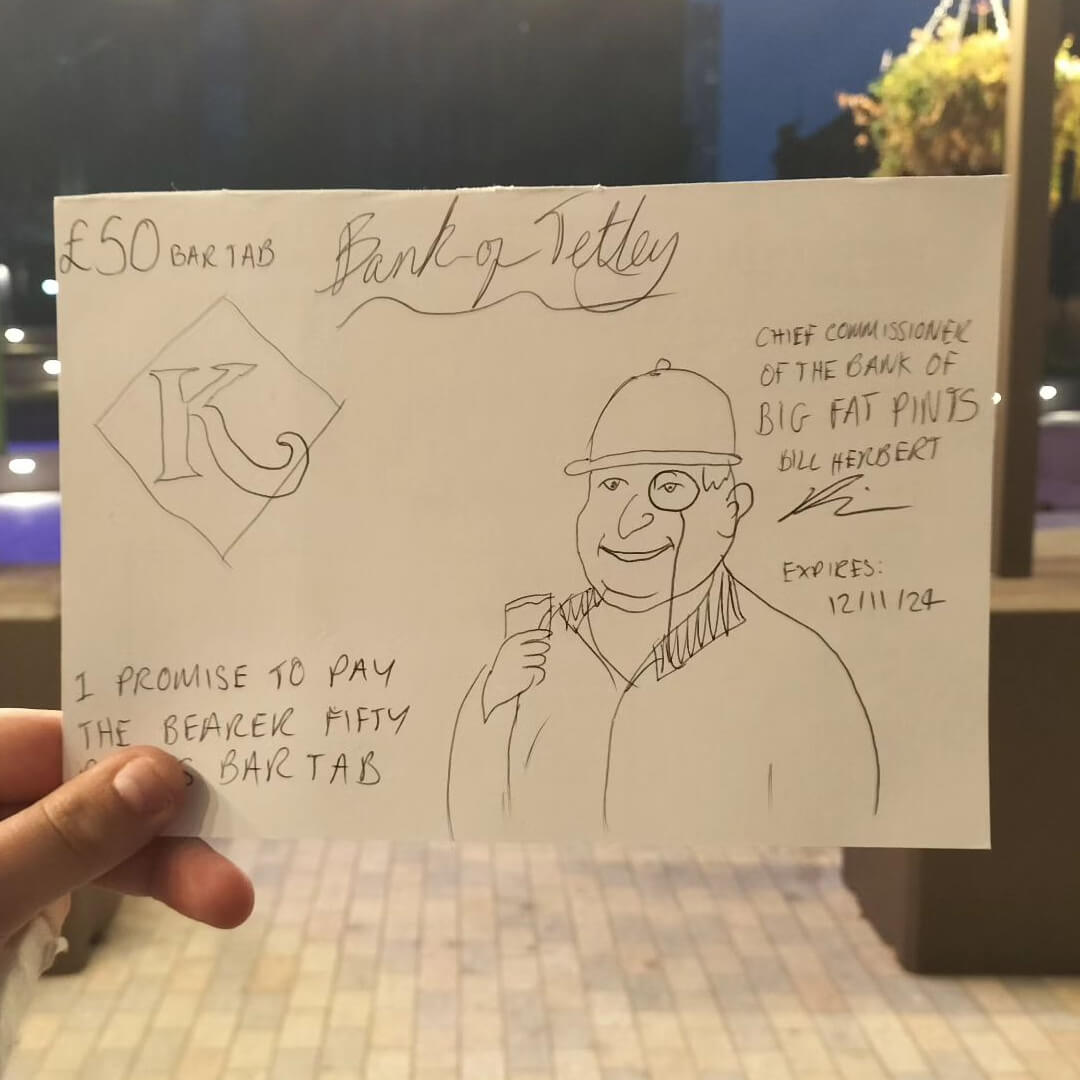 £50 BAR TAB
Bank of Tetley
K
CHIEF COMMISSIONER
OF THE BANK OF
BIG FAT PINTS
BILL HERBERT
EXPIRES:
12/11/24
I PROMISE TO PAY
THE BEARER FIFTY
BAR TAB